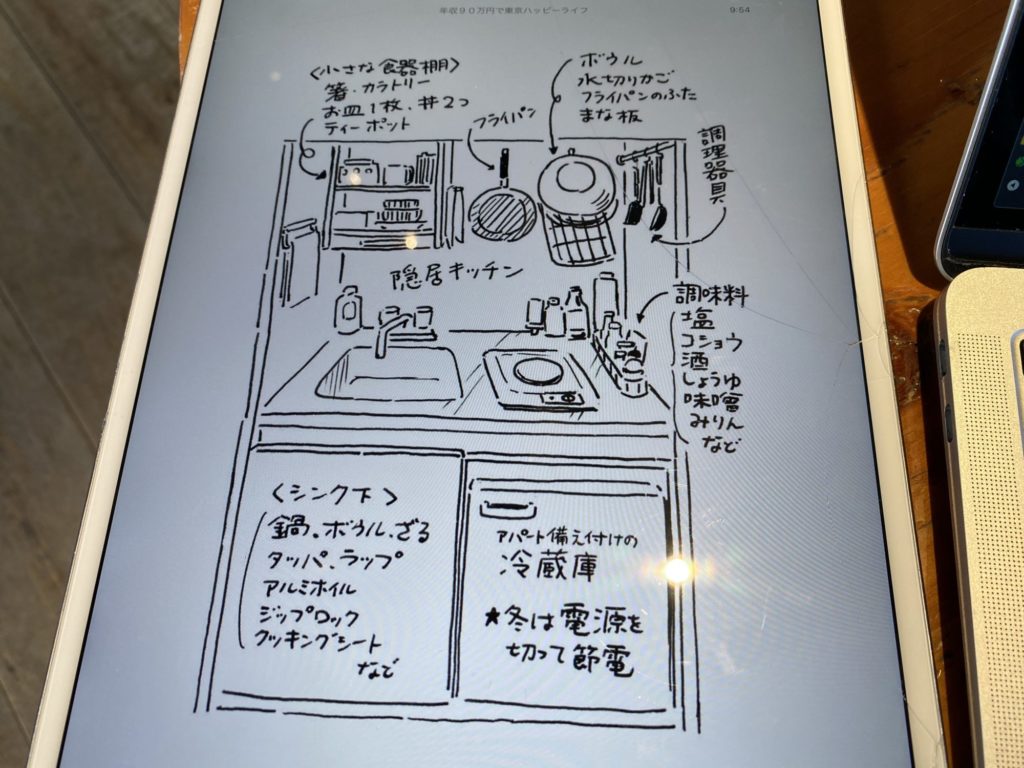 年収９０万円で東京ハッピーライフ
9:54
〈小さな食器棚〉
箸・カラトリー
お皿1枚、丼2つ
ティーポット
フライパン
ボウル
水切りかご
フライパンのふた
まな板
調理器具
隠居キッチン
調味料
塩
コショウ
酒
しょうゆ
味噌
みりん
など
〈シンク下〉
鍋。ボウル、ざる
タッパ、ラップ
アルミホイル
ジップロック
クッキングシート
など
アパート備え付けの
冷蔵庫
★冬は電源を
切って節電